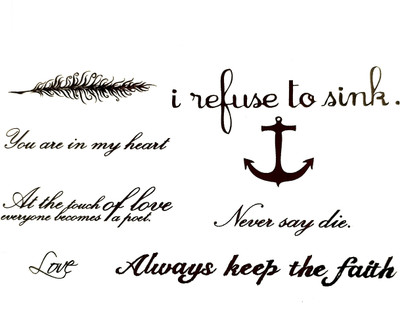 i refuse to sink.
You are in my heart
At the touch of love
everyone becomes a poet.
Never say die.
Love
Always keep the faith